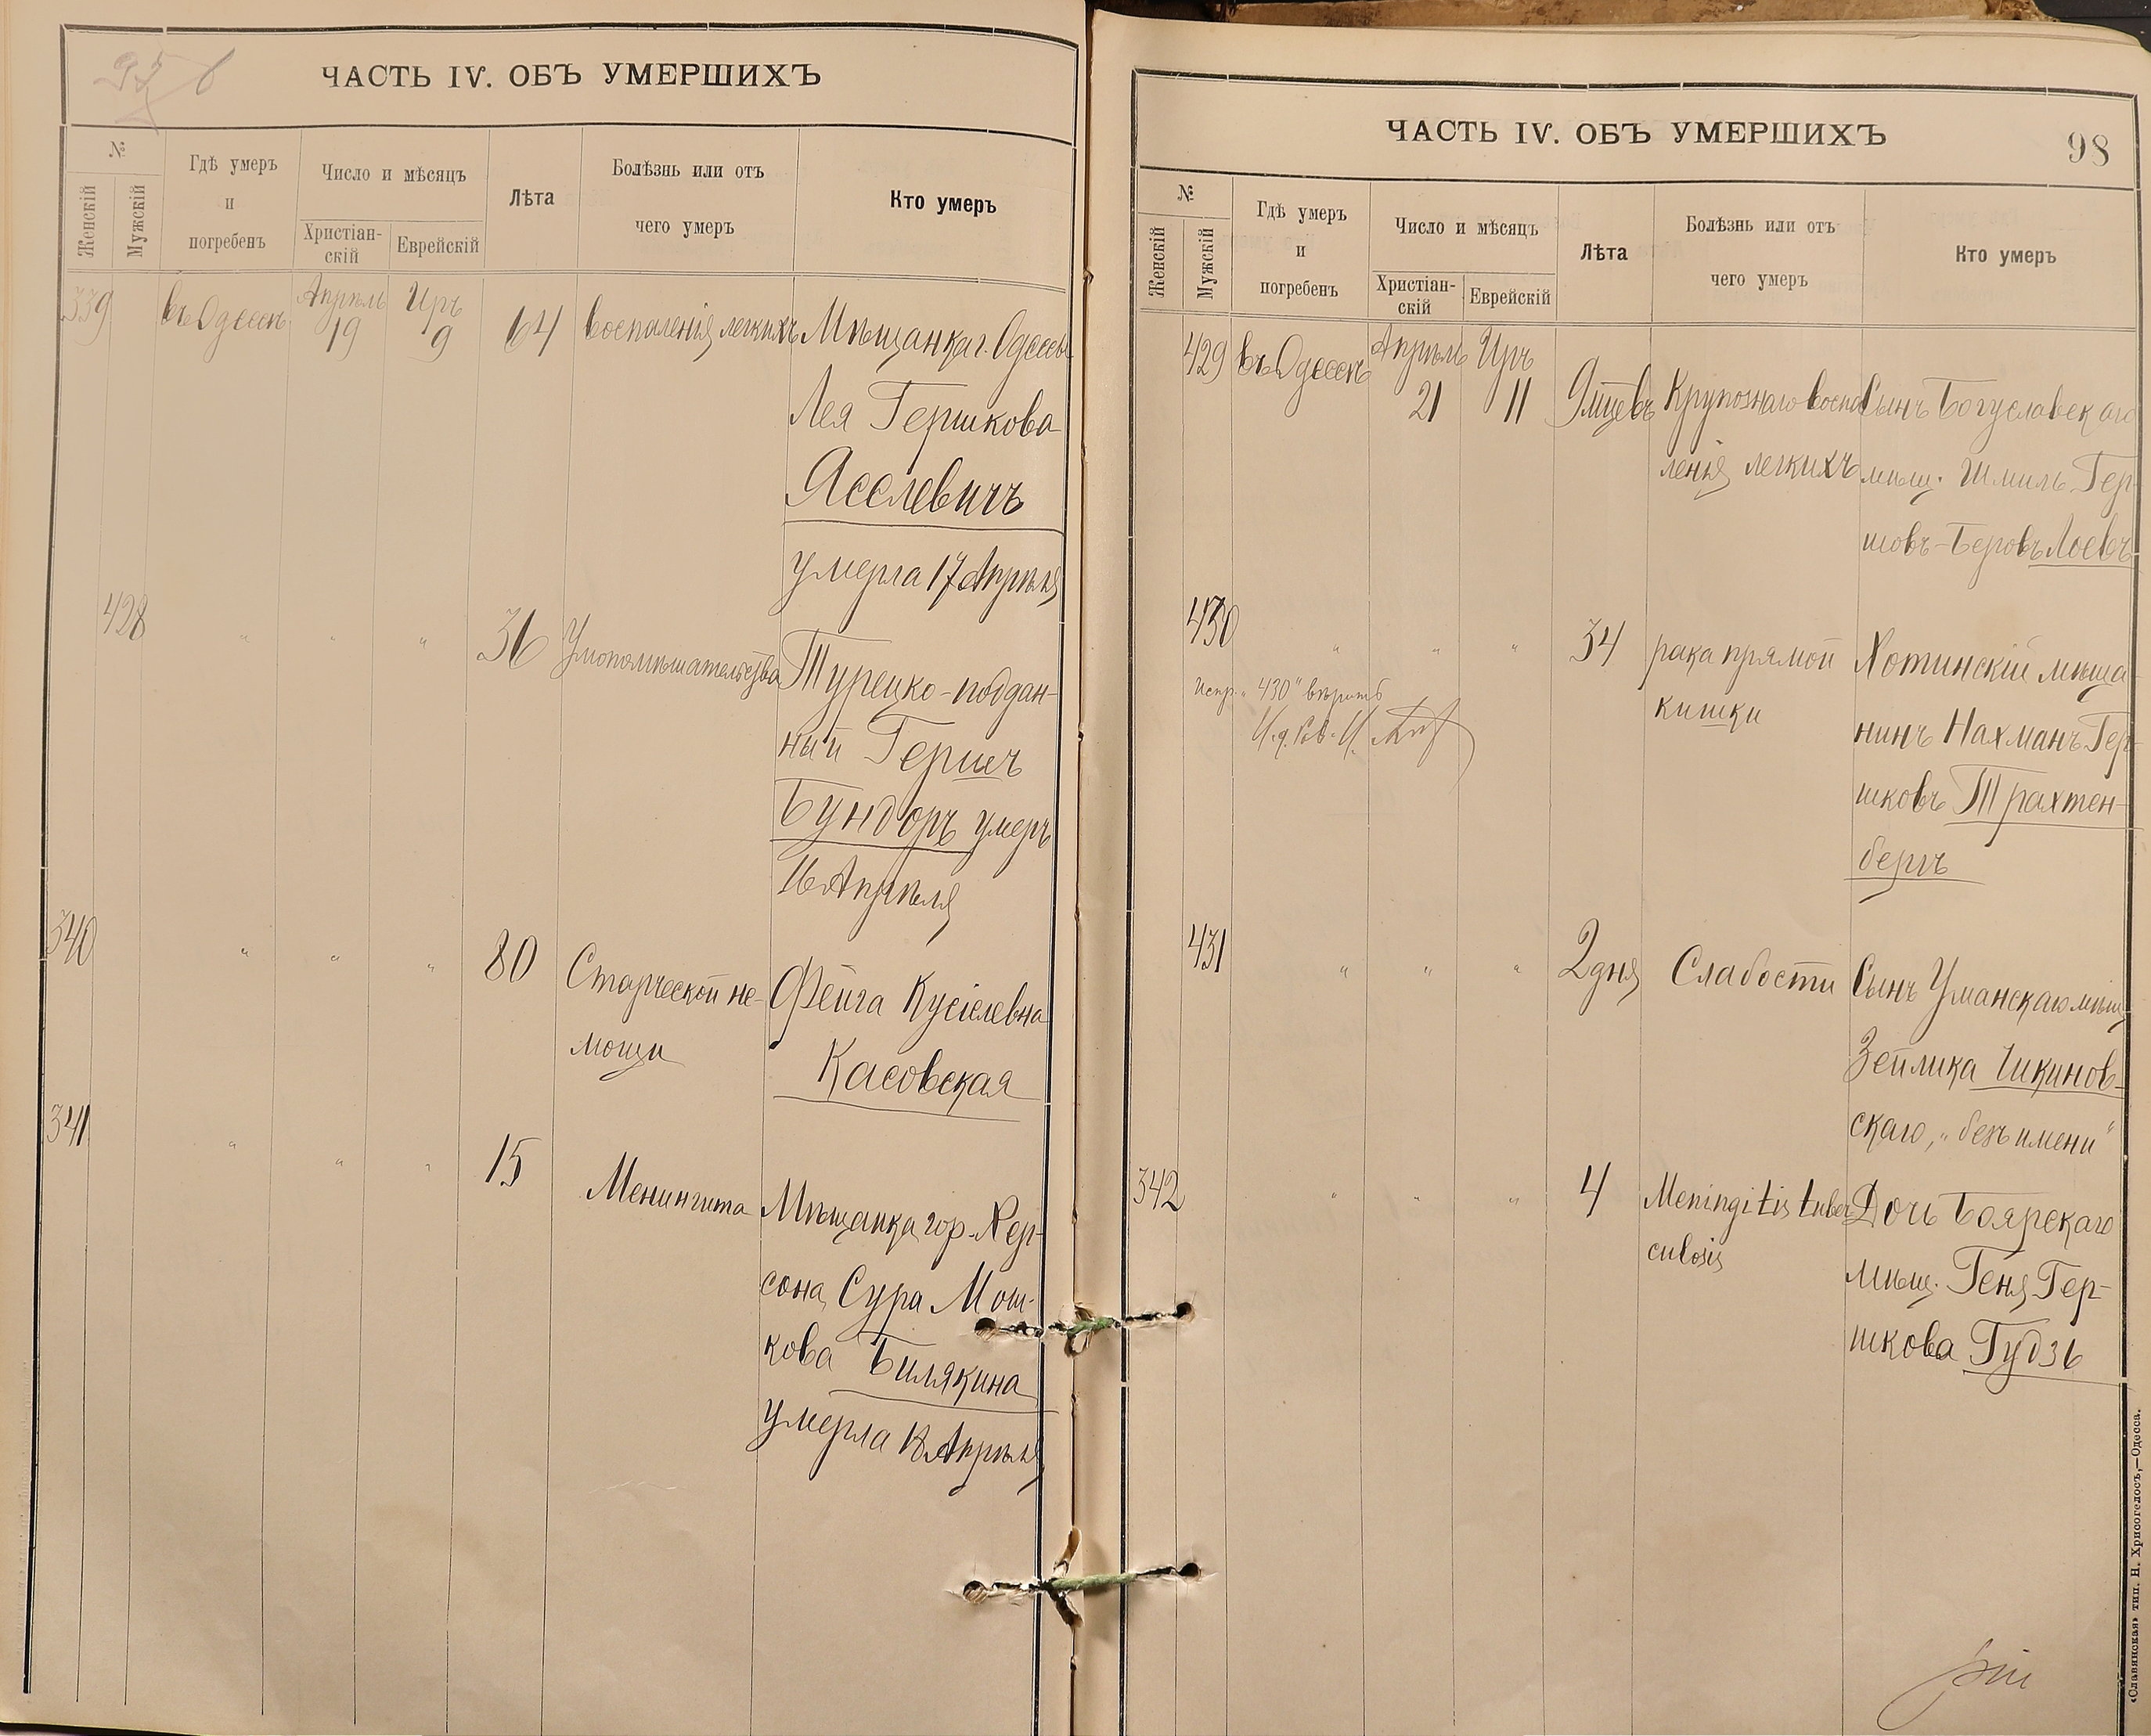 ЧАСТЬ IV. ОБЪ УМЕРШИХЪ
№
Женскій
Мужскій
Гдѣ умеръ
и
погребенъ
Число и мѣсяцъ
Христіан-
скій
Еврейскій
Лѣта
Болѣзнь или отъ
чего умеръ
Кто умеръ
339 въ Одессѣ Апрѣль 19 Иръ 9 64 воспаленія легкихъ Мѣщанка г. Одессы
Лея Гершкова
Ясслевичъ
умерла 17 Апрѣля
428 " " " 36 Умопомѣшательства Турецко-поддан-
ный Гершъ
Бундоръ умеръ
16 Апрѣля
340 " " " 80 Старческой не- Фейга Кусіелевна
мощи Касовская
341 " " " 15 Менингита Мѣщанка гор. Хер-
сона Сура Мош-
кова Билякина
умерла 18 Апрѣля
ЧАСТЬ IV. ОБЪ УМЕРШИХЪ
98
№
Женскій
Мужскій
Гдѣ умеръ
и
погребенъ
Число и мѣсяцъ
Христіан-
скій
Еврейскій
Лѣта
Болѣзнь или отъ
чего умеръ
Кто умеръ
429 въ Одессѣ Апрѣль 21 Иръ 11 9 мцевъ Крупознаго воспа Сынъ Богуславскаго
ленія легкихъ мѣщ. Шмиль Гер-
шовъ-Беровъ Лоевъ
430 " " " 34 рака прямой Хотинскій мѣща-
кишки нинъ Нахманъ Гер-
шковъ Трахтен-
бергъ
Испр. "430" вѣрить
431 " " " 2 дня Слабости Сынъ Уманскаго мѣщ
Зейлика Чикинов-
скаго, "безъ имени"
342 " " " 4 Meningitis tuber Дочь Боярскаго
culosis мѣщ. Геня Гер-
шкова Гудзь
«Славянская» тип. Н. Хрисогелосъ,—Одесса.